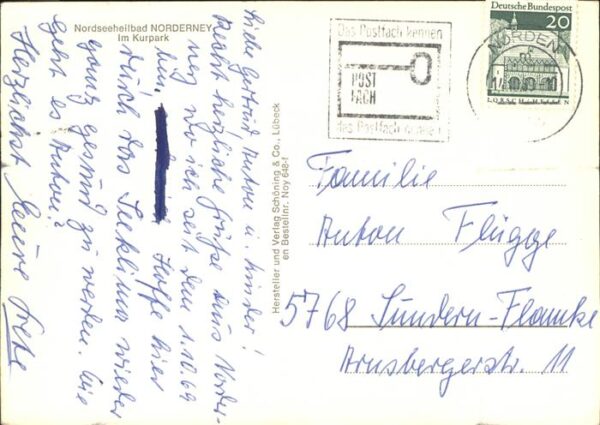 Nordseeheilbad NORDERNEY
Im Kurpark
Liebe Gertrud Anton u. Kinder!
Recht herzliche Grüße aus Norder-
ney wo ich seit dem 1.10.69
bin. Hoffe hier
durch das Seeklima wieder
ganz gesund zu werden. Wie
geht es Anton?
Herzlichst Eure
Hersteller und Verlag Schöning & Co., Lübeck
en Bestellnr. Noy 648-f
Das Postfach kennen
POST
FACH
das Postfach
NORDEN
Deutsche Bundespost
20
LORSCH/HESSEN
Familie
Anton Flügge
5768 Sundern-Flamke
Arnsbergerstr. 11